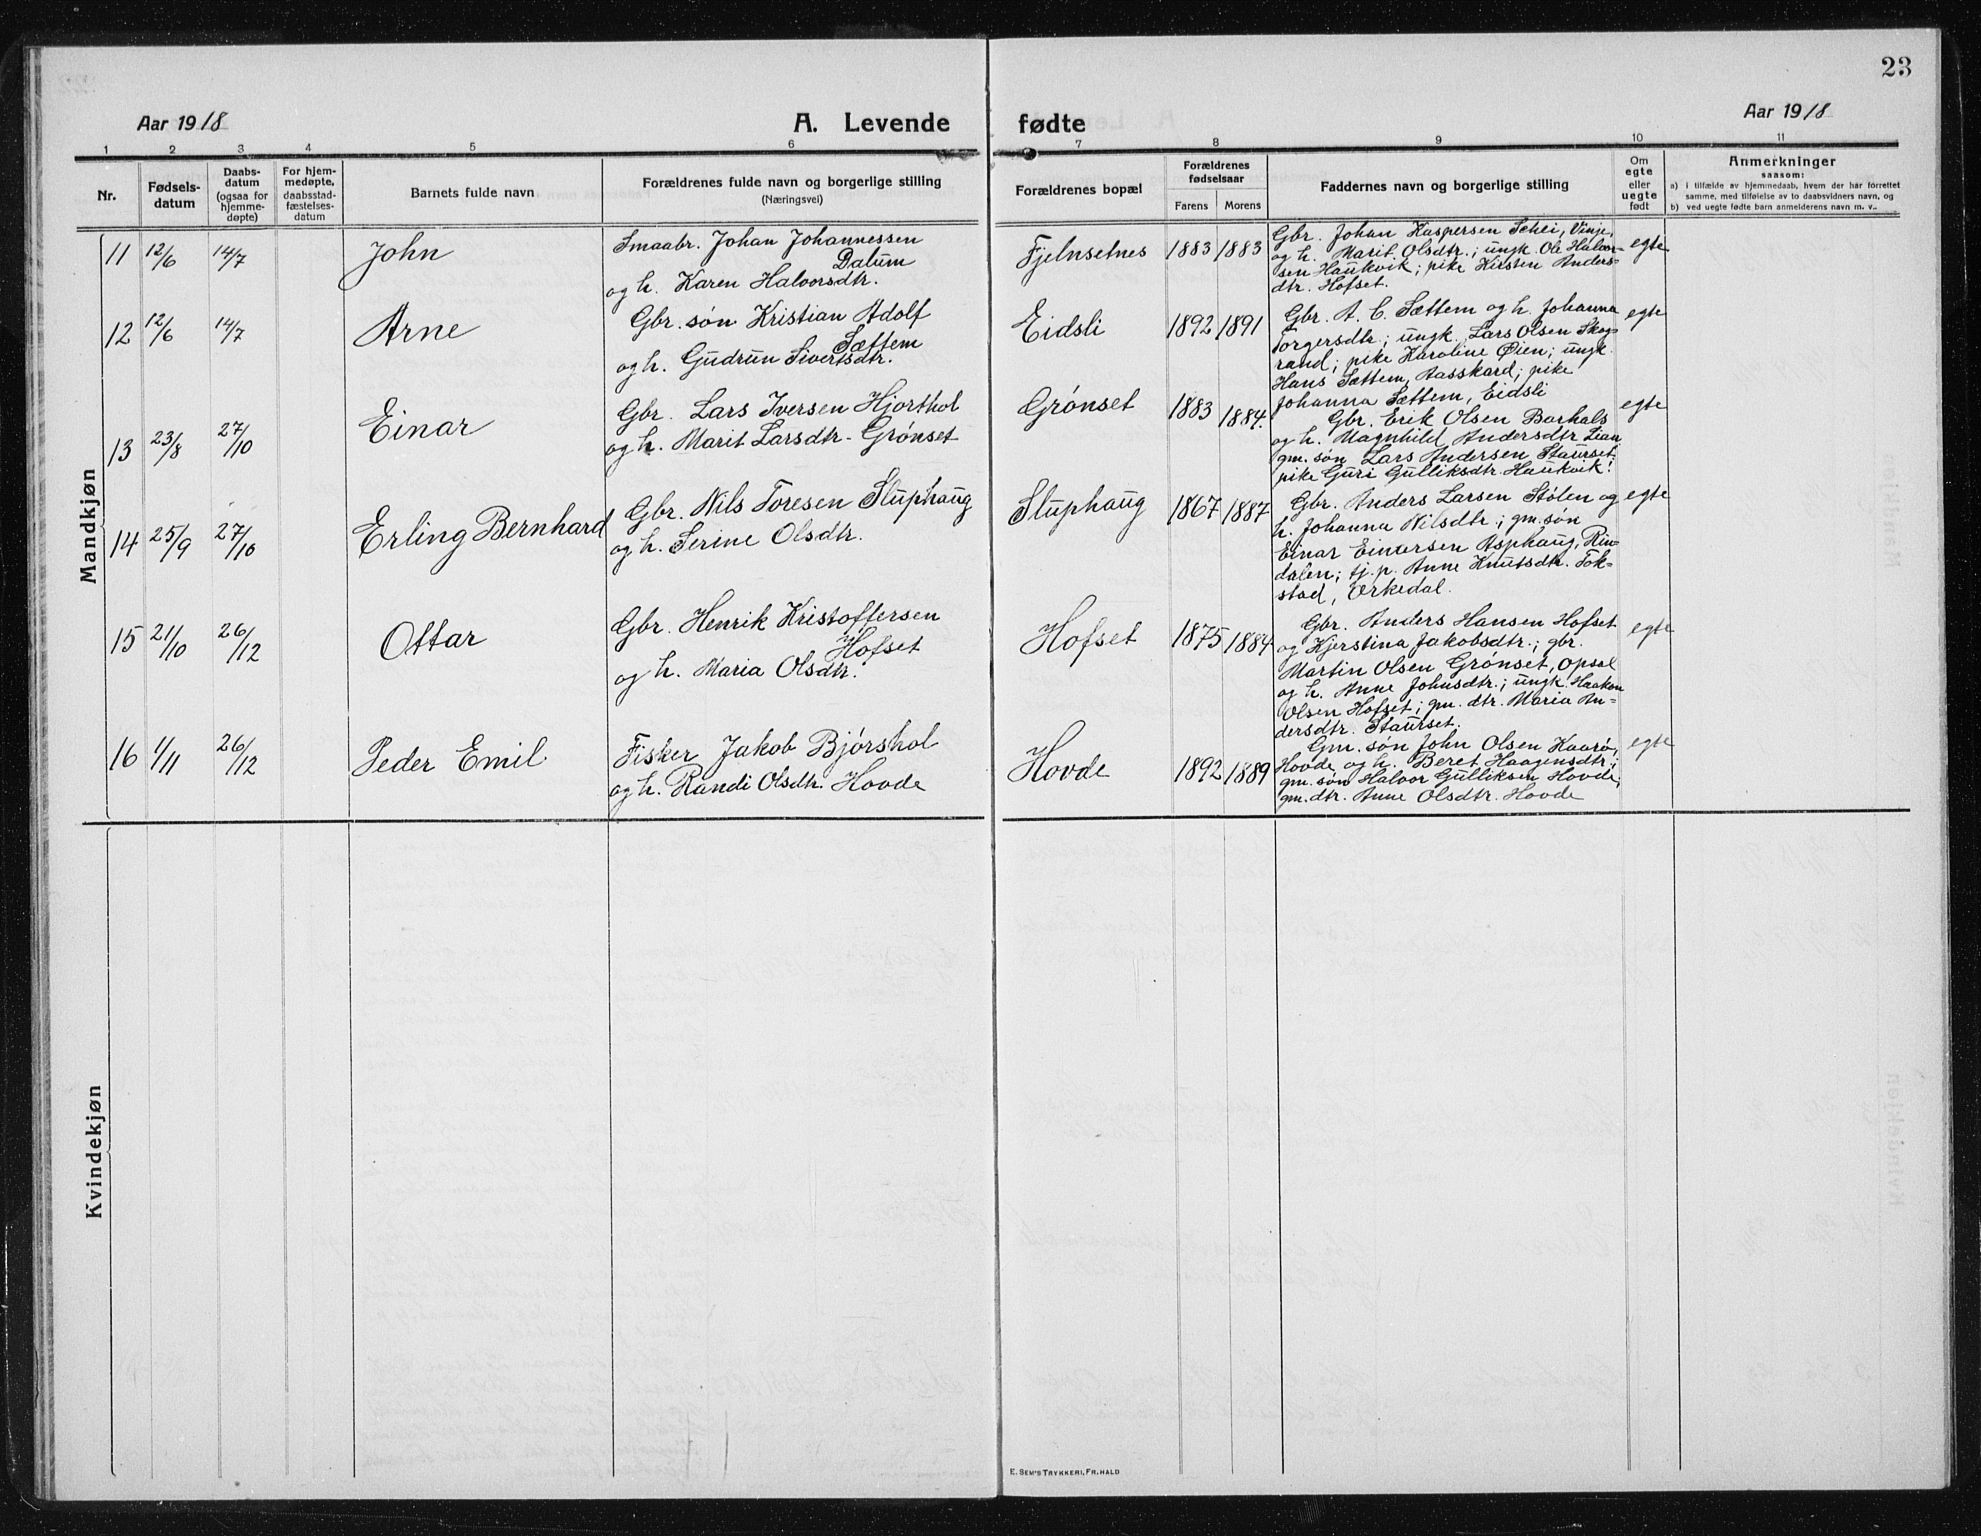 23
Aar 1918
A. Levende
fødte
Aar 1918
1 2 3 4 5 6 7 8 9 10 11
Nr.
Fødsels-
datum
Daabs-
datum
(ogsaa for
hjemme-
døpte)
For hjem-
medøpte,
daabsstad-
fæstelses-
datum
Barnets fulde navn
Forældrenes fulde navn og borgerlige stilling
(Næringsvei)
Forældrenes bopæl
Forældrenes
fødselsaar
Farens Morens
Faddernes navn og borgerlige stilling
Om
egte
eller
uegte
født
Anmerkninger
saasom:
a) i tilfælde av hjemmedaab, hvem der har forrettet
samme, med tilføielse av to daabsvidners navn, og
b) ved uegte fødte barn anmelderens navn m. v..
Mandkjøn
11 12/6 14/7 John
Smaabr. Johan Johannessen
Dalum
og h. Karen Halvorsdtr.
Fjelnsetnes 1883 1883
Gbr. Johan Kaspersen Schei, Vinje,
og h. Marit Olsdtr.; ungk. Ole Halvor-
sen Haukvik; pike Kirsten Anders-
dtr. Hofset.
egte
12 12/6 14/7 Arne
Gbr. søn Kristian Adolf
Sættem
og h. Gudrun Sivertsdtr.
Eidsli 1892 1891
Gbr. A. C. Sættem og h. Johanna
Torgersdtr; ungk. Lars Olsen Skog-
rand; pike Karoline Øien; ungk.
Hans Sættem, Aasskard; pike
Johanna Sættem, Eidsli
egte
13 23/8 27/10 Einar
Gbr. Lars Iversen Hjorthol
og h. Marit Larsdtr. Grønset
Grønset 1883 1884.
Gbr. Erik Olsen Barhals
og h. Magnhild Andersdtr Lian
gm. søn Lars Andersen Staurset;
pike Guri Gulliksdtr. Haukvik.
egte
14 25/9 27/10 Erling Bernhard
Gbr. Nils Toresen Sluphaug
og h. Serine Olsdtr.
Sluphaug 1867 1887
Gbr. Anders Larsen Stølen og
h. Johanna Nilsdtr.; gm. søn
Einar Einarsen Asphaug, Rin-
dalen; tj. p. Anne Knutsdtr. Tok-
stad, Orkedal.
egte
15 21/10 26/12 Ottar
Gbr. Henrik Kristoffersen
Hofset
og h. Maria Olsdtr.
Hofset 1875 1884
Gbr. Anders Hansen Hofset
og Kjerstina Jakobsdtr.; gbr.
Martin Olsen Grønset, Opsal
og h. Anne Johnsdtr.; ungk. Haakon
Olsen Hofset; gm. dtr. Maria An-
dersdtr. Staurset.
egte
16 1/11 26/12 Peder Emil
Fisker Jakob Bjørshol
og h. Randi Olsdtr. Hovde
Hovde 1892 1889
Gm. søn John Olsen Kaarø,
Hovde og h. Beret Haagensdtr;
gm. søn Halvor Gulliksen Hovde;
gm. dtr. Anne Olsdtr. Hovde
egte
Kvindekjøn
E. SEM'S TRYKKERI, FR.HALD